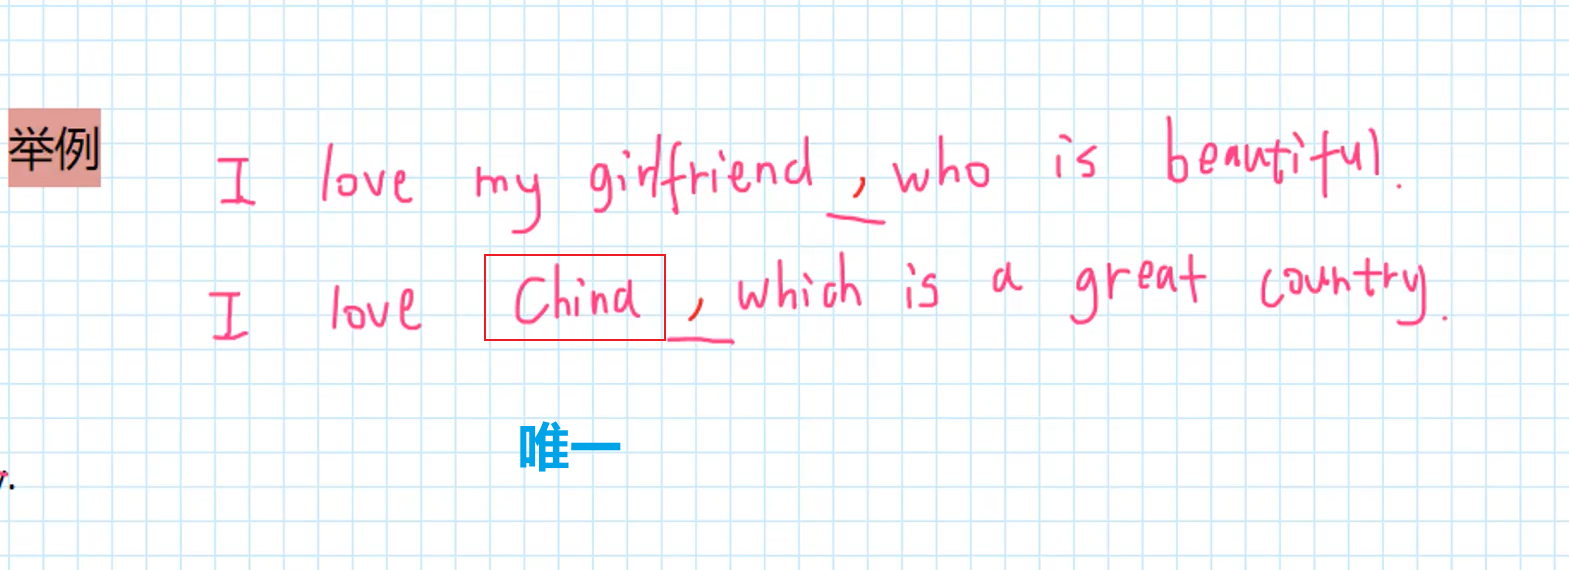 举例
I love my girlfriend, who is beautiful.
I love China, which is a great country.
唯一